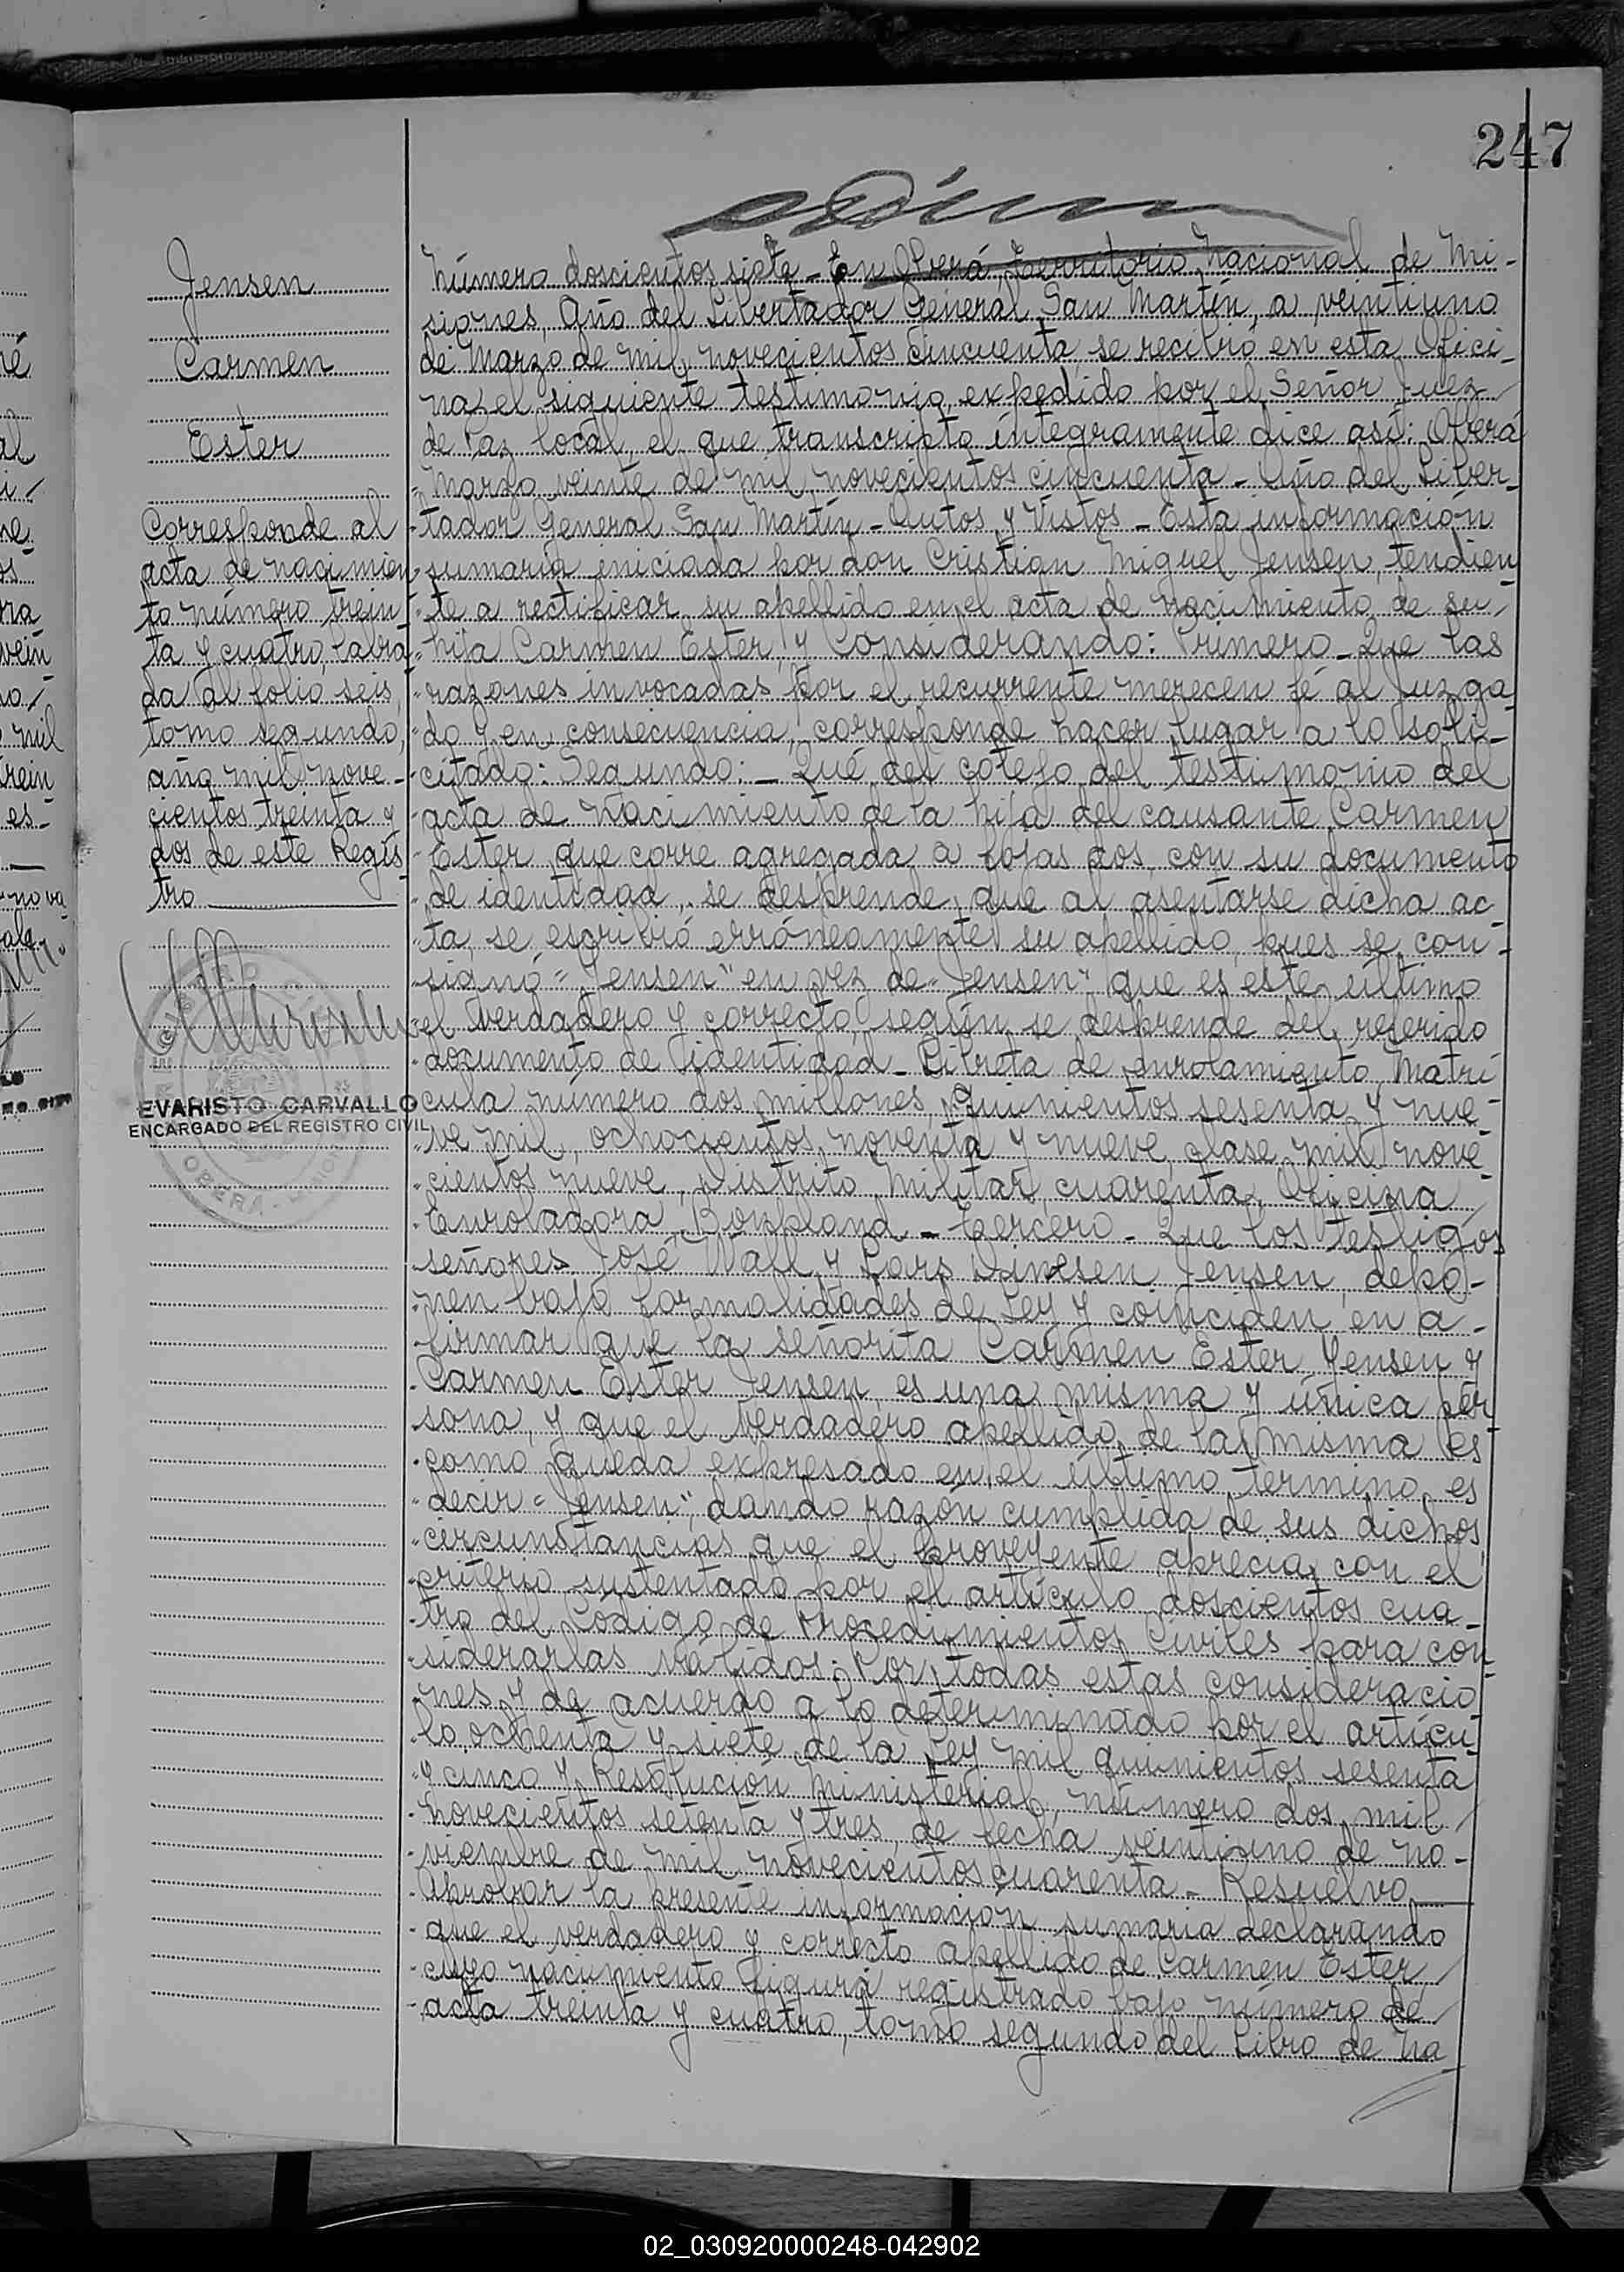 247
Jensen
Carmen
Ester
Corresponde al
acta de nacimien
to número trein
ta y cuatro, labra
da al folio seis,
tomo segundo,
año mil nove-
cientos treinta y
dos de este Regis
tro
EVARISTO CARVALLO
ENCARGADO DEL REGISTRO CIVIL
Número doscientos siete - En Oberá, Territorio Nacional de Mi-
siones, Año del Libertador General San Martín, a veintiuno
de Marzo de mil novecientos cincuenta, se recibió en esta Ofici-
na, el siguiente testimonio expedido por el Señor Juez
de Paz local, el que transcripto íntegramente dice así: Oberá
Marzo veinte de mil novecientos cincuenta - Año del Liber-
tador General San Martín - Autos y Vistos - Esta información
sumaria iniciada por don Cristian Miguel Jensen, tendien
te a rectificar su apellido en el acta de nacimiento de su
hija Carmen Ester, y Considerando: Primero - Que las
razones invocadas por el recurrente merecen fé al Juzga
do y en consecuencia, corresponde hacer lugar a lo soli-
citado: Segundo: - Qué del cotejo del testimonio del
acta de nacimiento de la hija del causante Carmen
Ester que corre agregada a fojas dos, con su documento
de identidad, se desprende que al asentarse dicha ac
ta, se escribió erróneamente su apellido, pues se con-
signó "Yensen" en vez de "Jensen" que es este último
el verdadero y correcto, según se desprende del referido
documento de identidad - Libreta de enrolamiento Matrí
cula número dos millones, quinientos sesenta y nue-
ve mil, ochocientos noventa y nueve, clase mil nove-
cientos nueve, Distrito Militar cuarenta, Oficina
Enroladora, Bonpland - Tercero - Que los testigos
señores José Wall y Lars Dinesen Jensen, depo-
nen bajo formalidades de Ley y coinciden en a-
firmar que la señorita Carmen Ester Yensen y
Carmen Ester Jensen es una misma y única per
sona, y que el verdadero apellido de la misma es
como queda expresado en el último termino, es
decir "Jensen", dando razón cumplida de sus dichos,
circunstancias que el proveyente aprecia con el
criterio sustentado por el artículo doscientos cua-
tro del Código de Procedimientos Civiles para con
siderarlas válidas: Por todas estas consideracio
nes y de acuerdo a lo determinado por el artícu-
lo ochenta y siete de la Ley mil quinientos sesenta
y cinco y Resolución Ministerial, número dos mil
novecientos setenta y tres, de fecha veintiuno de no-
viembre de mil novecientos cuarenta - Resuelvo
Aprobar la presente información sumaria declarando
que el verdadero y correcto apellido de Carmen Ester
cuyo nacimiento figura registrado bajo número de
acta treinta y cuatro, tomo segundo del Libro de Na
02_030920000248-042902